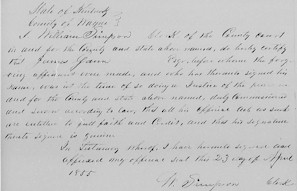 State of Kentucky
County of Wayne
I William Simpson Clerk of the County court
in and for the County and state above named, do hereby certify
that James Esqr, before whom the
appears were made, and who has thereunto signed his
name was at the time of so doing a Justice of the peace in
and for the County and state above named, duly Commissioned
and sworn according to law, that all his Official acts as such
are entitled to full faith and Credit, and that his signature
thereto signed is genuine.
In Testimony whereof I have hereunto signed and
affixed my official seal this 23 day of April
1855
W. Simpson clerk